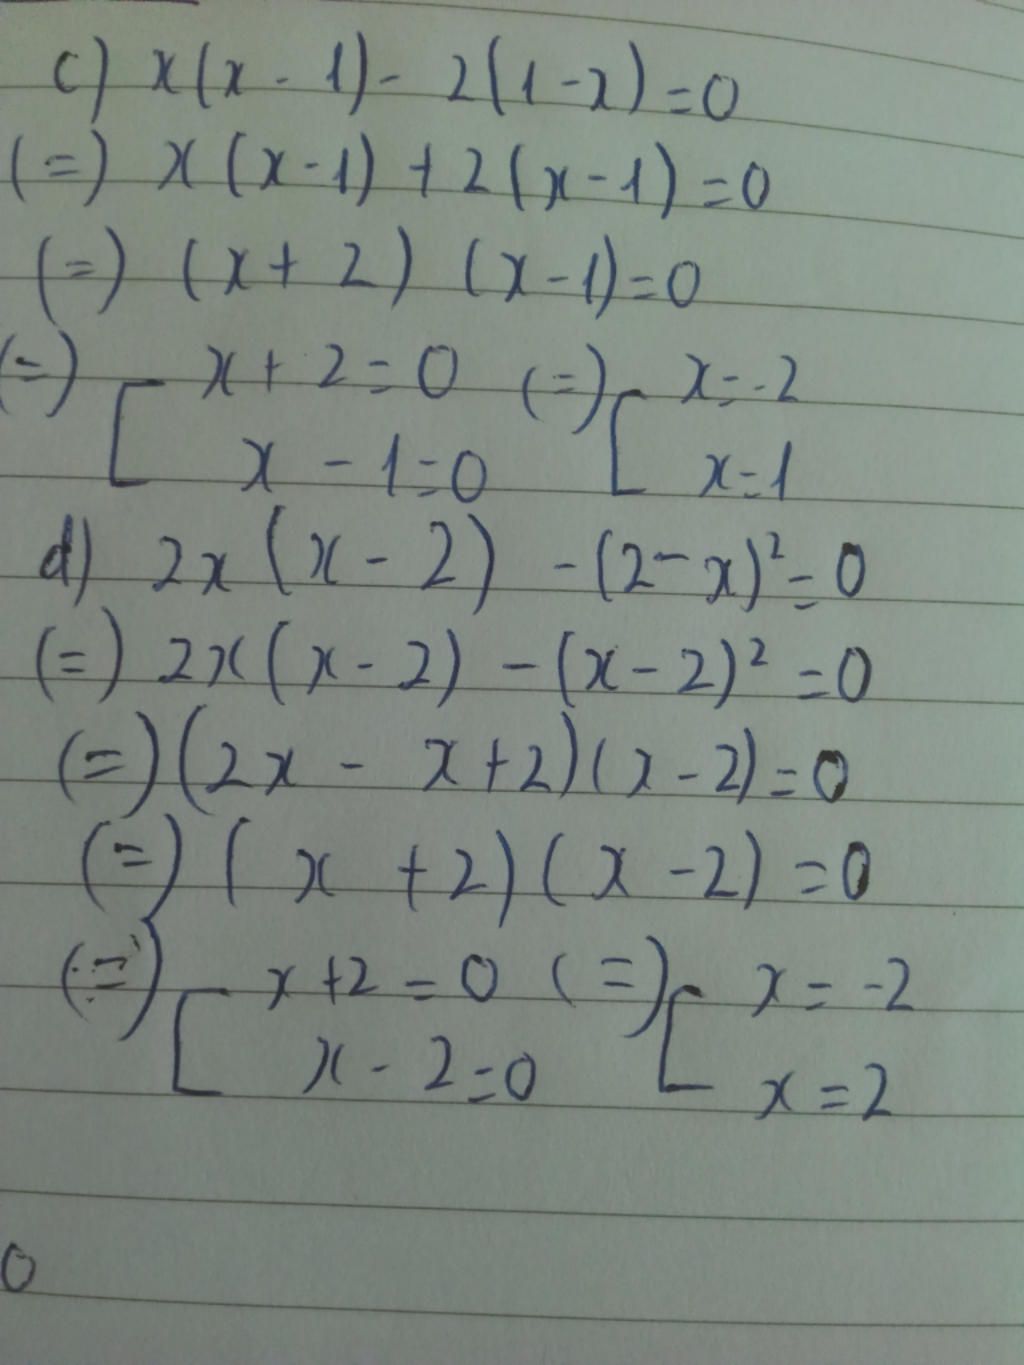 c) x(x - 1) - 2(1 - x) = 0
(=) x(x - 1) + 2(x - 1) = 0
(=) (x + 2) (x - 1) = 0
(=) [ x + 2 = 0 (=) [ x = -2
x - 1 = 0 x = 1
d) 2x(x - 2) - (2 - x)² = 0
(=) 2x(x - 2) - (x - 2)² = 0
(=) (2x - x + 2)(x - 2) = 0
(=) (x + 2)(x - 2) = 0
(=) [ x + 2 = 0 (=) [ x = -2
x - 2 = 0 x = 2
0